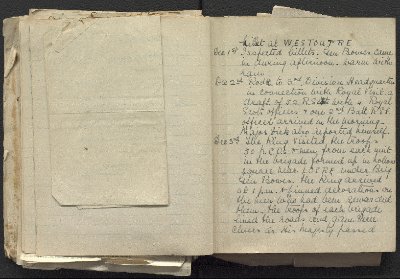 billet at WESTOUTRE
Dec 1st Inspected billets. Gen Bowes came
in during afternoon. Warm with
rain.
Dec 2nd Rode to 3rd Division Headquarters
in connection with Royal Visit. A
draft of 52 R.S. with 4 Royal
Scots officers & one 2nd Batt R.S.F.
officer arrived in the morning.
Major Dick also reported himself.
Dec 3rd The King visited the troops.
50 N.C.Os. & men from each unit
in the brigade formed up in hollow
square near LOCRE under Brig
Gen Bowes. The King arrived
at 1 pm. & pinned decorations on
the men who had been awarded
them. The troops of each brigade
lined the roads and gave three
cheers as His Majesty passed